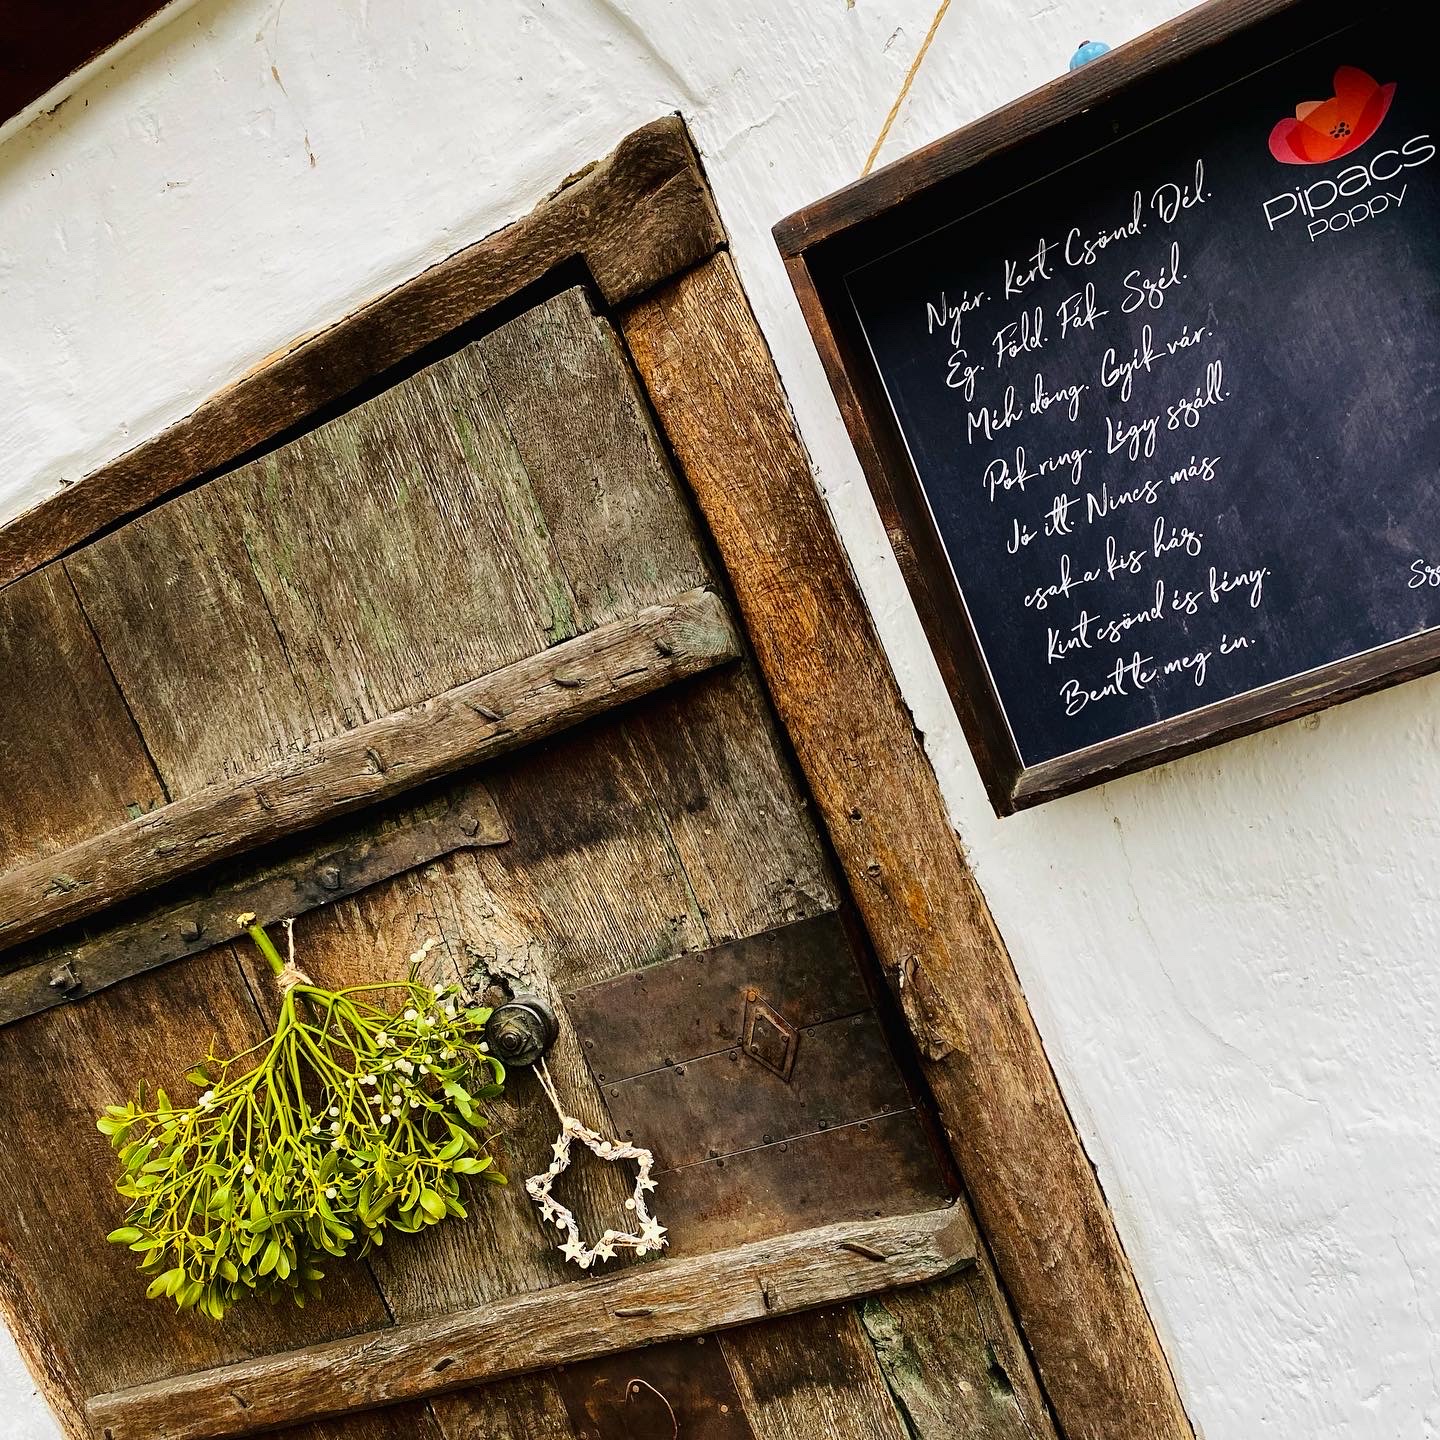 Pipacs
Poppy
Nyár. Kert. Csönd. Dél.
Ég. Föld. Fák. Szél.
Méh döng. Gyík vár.
Pók ring. Légy száll.
Jó itt. Nincs más
csak a kis ház.
Kint csönd és fény.
Bent te meg én.